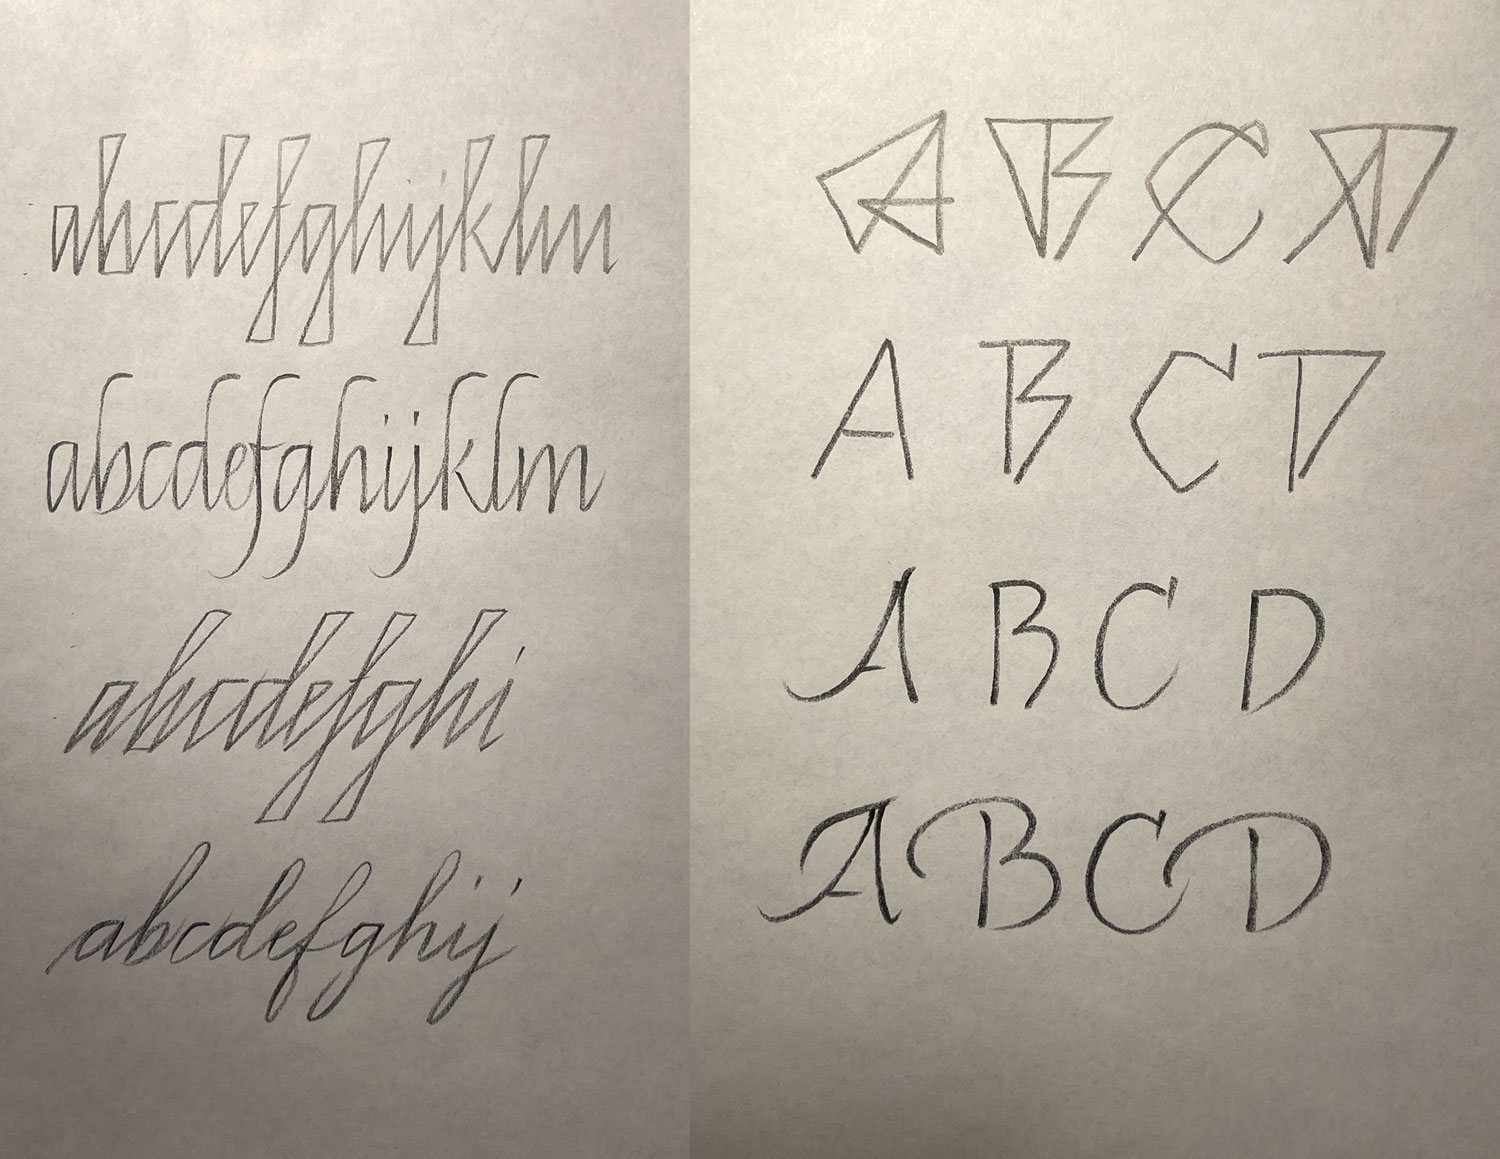 abcdefghijklm
abcdefghijklm
abcdefghi
abcdefghij
A B C D
A B C D
A B C D
A B C D